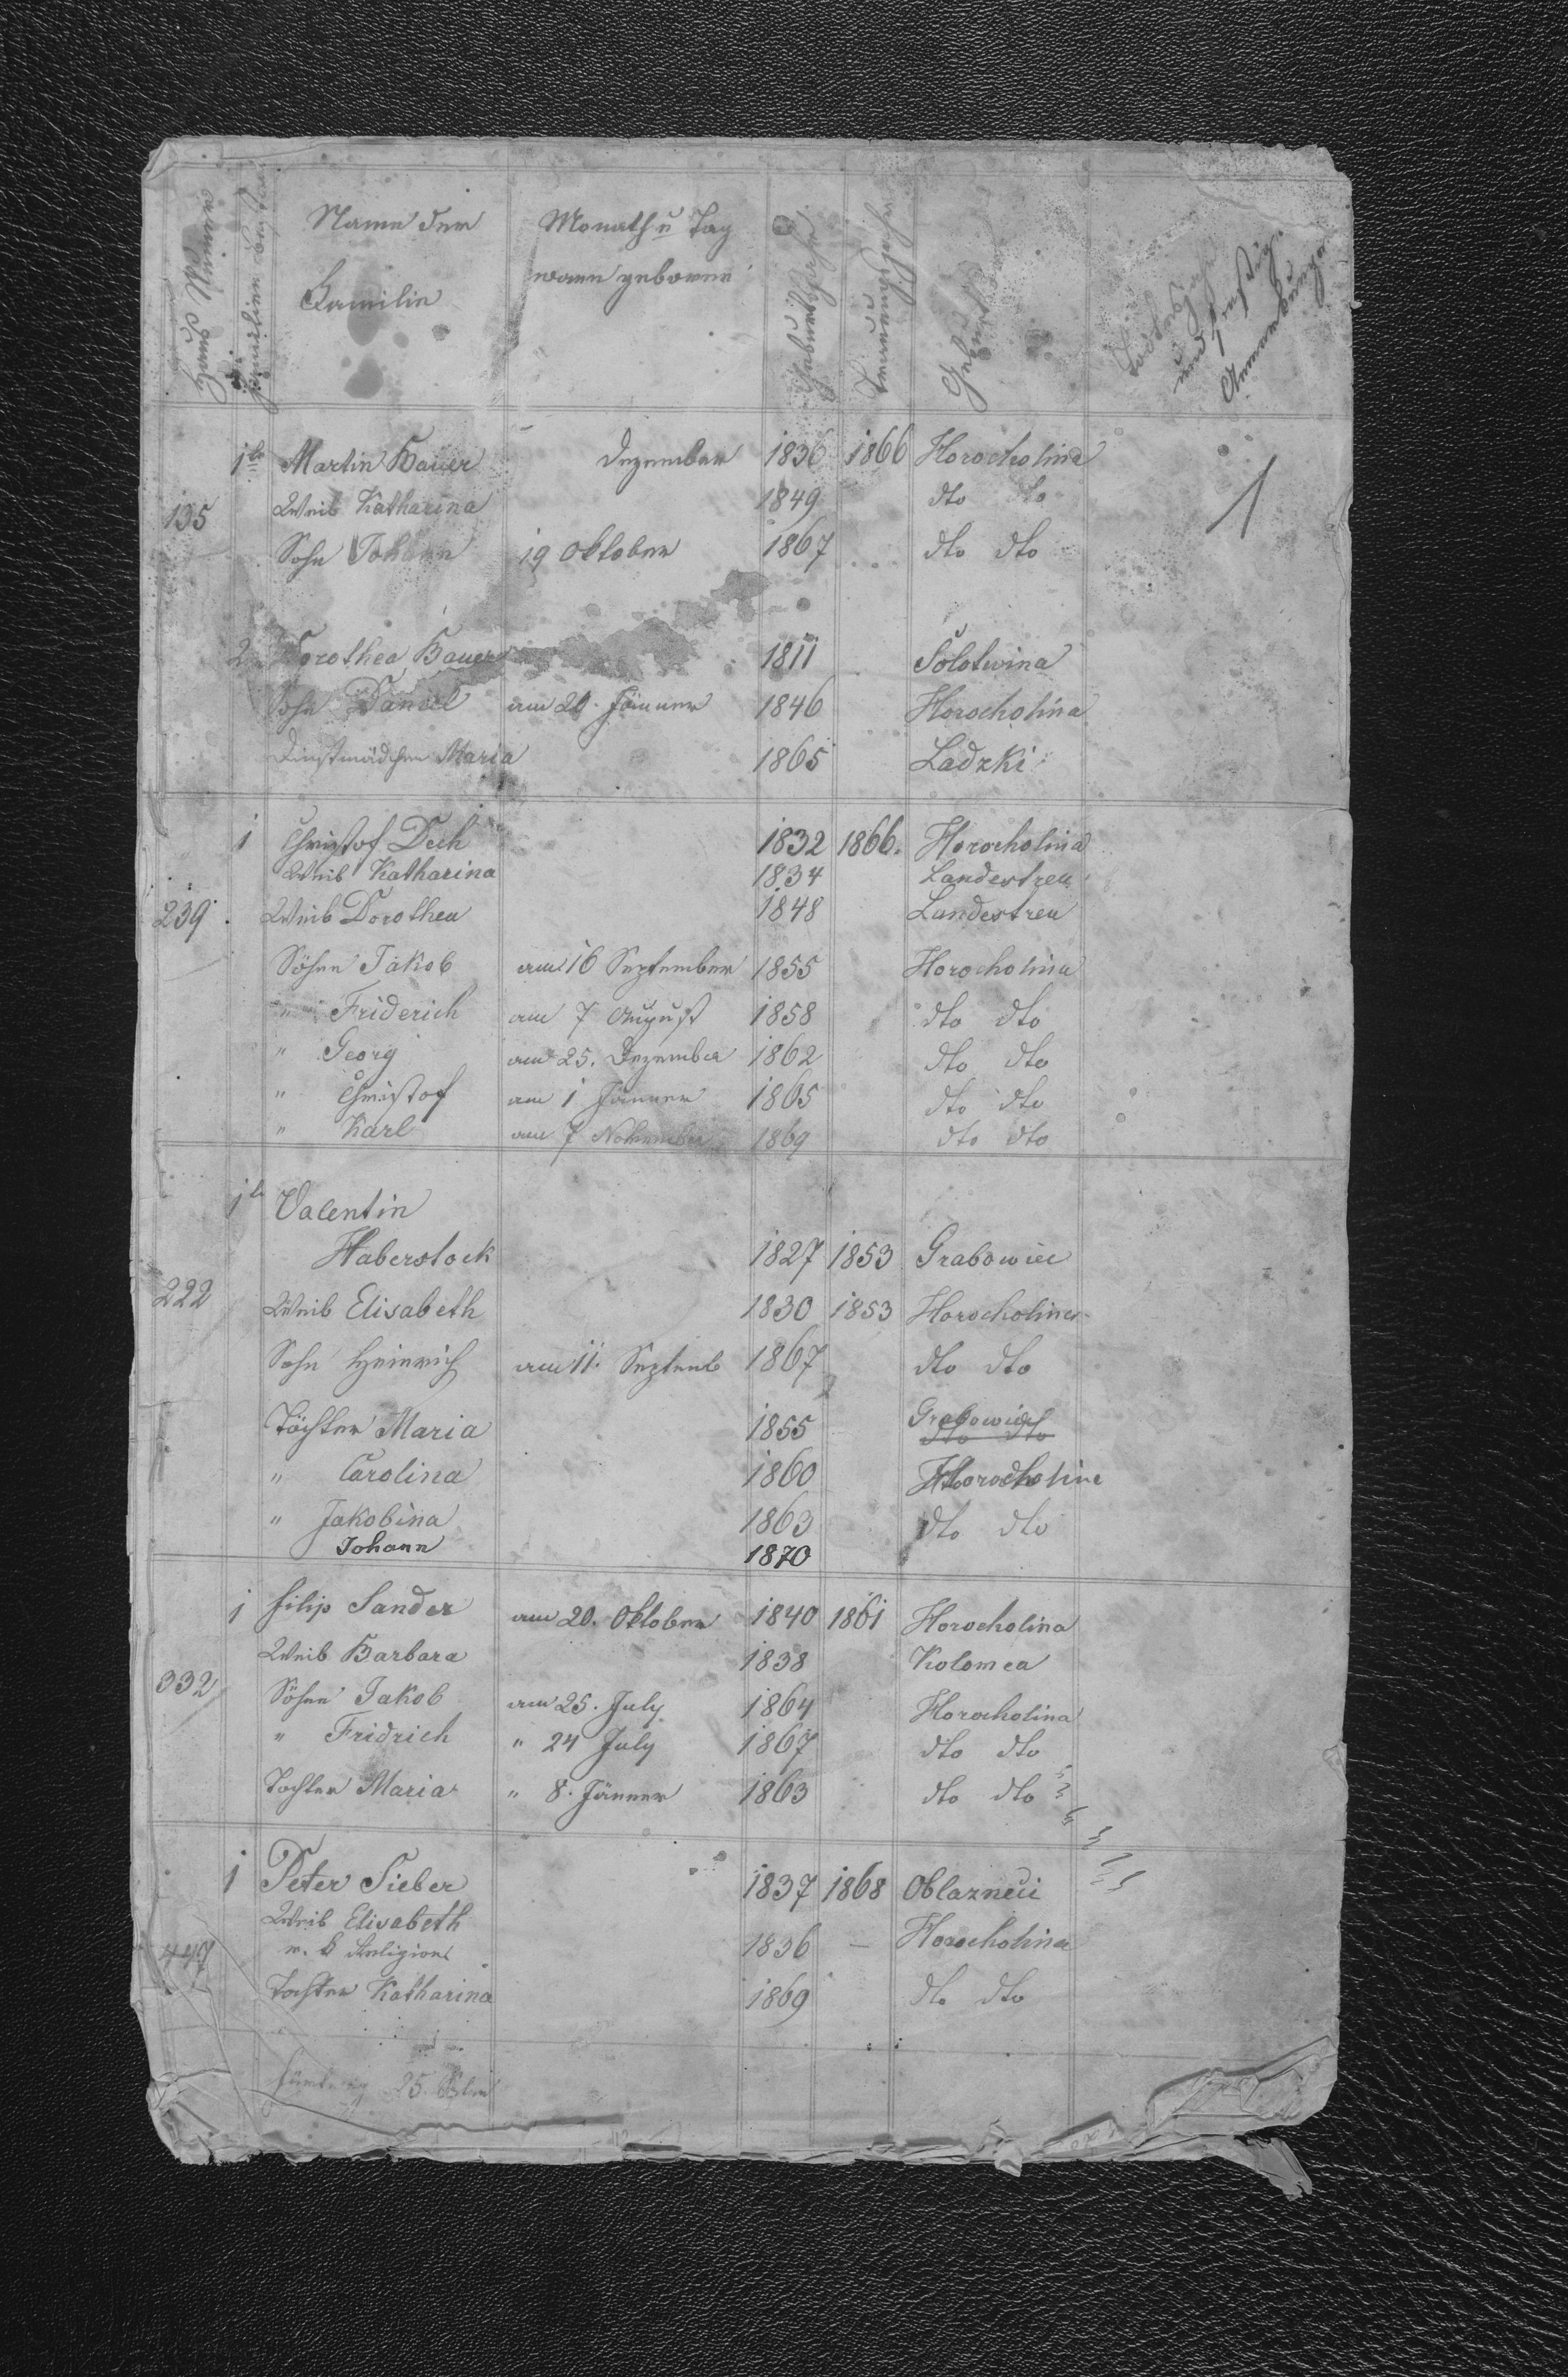 Haus Nummer
Familien Bestand
Name der
Familie
Monath u Tag
wann geboren
Geburtsjahr
Trauungsjahr
Geburtsort
Todtesjahr
und sonstige
Anmerkungen
1te Martin Bauer Dezember 1836 1866 Horocholina 1
135 Weib Katharina 1849 dto dto
Sohn Johann 19 Oktober 1867 dto dto
2 Dorothea Bauer 1811 Solotwina
Sohn Daniel am 20. Jänner 1846 Horocholina
Dinstmädchen Maria 1865 Ladzki
1 Christof Dech 1832 1866. Horocholina
Weib Katharina 1834 Landestreu
239. Weib Dorothea 1848 Landestreu
Söhne Jakob am 16 September 1855 Horocholina
" Friderich am 7 August 1858 dto dto
" Georg am 25. Dezember 1862 dto dto
" Christof am 1 Jänner 1865 dto dto
" Karl am 7 November 1869 dto dto
1te Valentin
Haberstock 1827 1853 Grabowiec
222 Weib Elisabeth 1830 1853 Horocholina
Sohn Heinrich am 11. Septemb 1867 dto dto
Töchter Maria 1855 Grabowiec dto dto
" Carolina 1860 Horocholine
" Jakobina 1863 dto dto
Johann 1870
1 Filip Sander am 20. Oktober 1840 1861 Horocholina
Weib Barbara 1838 Kolomea
332 Söhne Jakob am 25. July 1864 Horocholina
" Fridrich " 24 July 1867 dto dto
Tochter Maria " 8. Jänner 1863 dto dto
1 Peter Sieber 1837 1868 Oblaznici
Weib Elisabeth
447 Religion 1836 — Horocholina
Tochter Katharina 1869 dto dto
25